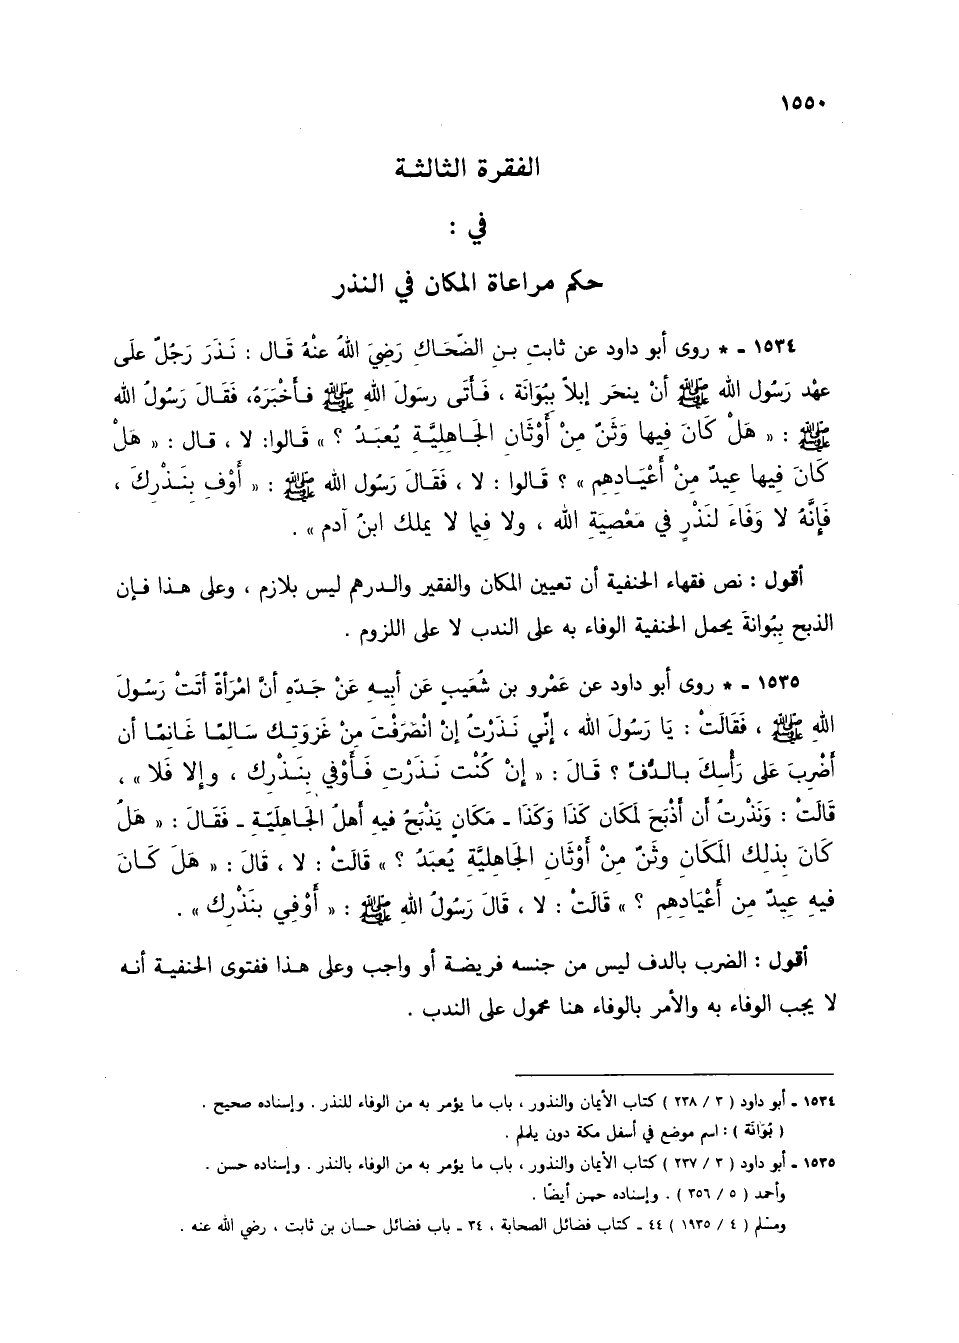 ١٥٥٠
الفقرة الثالثة
في :
حكم مراعاة المكان في النذر
١٥٣٤ - * روى أبو داود عن ثابتِ بنِ الضّحَاكِ رَضِيَ اللهُ عنْهُ قَال : نَذَرَ رَجُلٌ علَى
عهْد رَسُول الله ﷺ أنْ ينحَر إبلاً بِبُوَانَة ، فَأَتَى رسولَ اللهِ ﷺ فأخْبَرَهُ، فَقَالَ رَسُولُ الله
ﷺ : « هَلْ كَانَ فِيها وَثَنٌ مِنْ أَوْثَانِ الجَاهِليَّة يُعبَدُ ؟ » قَالوا: لا ، قال : « هَلْ
كَانَ فِيها عِيدٌ مِنْ أَعْيَادِهِم » ؟ قَالوا : لا ، فَقَالَ رَسُول الله ﷺ : « أَوْفِ بِنَذْرِكَ ،
فَإنَّهُ لا وَفَاءَ لنَذْرٍ في مَعْصِيَةِ الله ، ولا فيما لا يملك ابنُ آدم » .
أقول : نص فقهاء الحنفية أن تعيين المكان والفقير والدرهم ليس بلازم ، وعلى هذا فإن
الذبح بِبُوانةَ يحمل الحنفية الوفاء به على الندب لا على اللزوم .
١٥٣٥ - * روى أبو داود عن عَمْرِو بن شُعَيبٍ عَن أبيهِ عَنْ جَدّهِ أنَّ امْرَأةً أتَتْ رَسُولَ
اللهِ ﷺ ، فَقَالَتْ : يَا رَسُولَ الله ، إنّي نَذَرْتُ إنْ انْصَرَفْتَ مِنْ غَزوَتِك سَالِمًا غَانِمًا أن
أَضْرِبَ عَلى رَأْسِكَ بالدُّفِّ ؟ قَالَ : « إنْ كُنْت نَذَرْتِ فَأَوْفي بِنَذْرِك ، وإلا فَلا » ،
قَالَتْ : وَنَذَرتُ أن أَذْبَحَ لمكَان كَذَا وَكَذَا - مَكَانٍ يَذْبَحُ فيهِ أهلُ الجَاهليَةِ - فَقَالَ : « هَلْ
كَانَ بِذلِك المَكَانِ وثَنٌ مِنْ أَوْثَانِ الجَاهِليَّة يُعبَدُ ؟ » قَالَتْ : لا ، قَالَ : « هَلَ كَانَ
فيهِ عِيدٌ مِن أَعْيَادِهِم ؟ » قَالَتْ : لا ، قَالَ رَسُولُ اللهِ ﷺ : « أَوْفِي بنَذْرِك » .
أقول : الضرب بالدف ليس من جنسه فريضة أو واجب وعلى هذا ففتوى الحنفية أنه
لا يجب الوفاء به والأمر بالوفاء هنا محمول على الندب .
١٥٣٤ - أبو داود ( ٣ / ٢٣٨ ) كتاب الأيمان والنذور ، باب ما يؤمر به من الوفاء للنذر . وإسناده صحيح .
( بُوَانَة ) : اسم موضع في أسفل مكة دون يلملم .
١٥٣٥ - أبو داود ( ٣ / ٢٣٧ ) كتاب الأيمان والنذور ، باب ما يؤمر به من الوفاء بالنذر . وإسناده حسن .
وأحمد ( ٥ / ٣٥٦ ) . وإسناده حسن أيضًا .
ومسلم ( ٤ / ١٩٣٥ ) ٤٤ - كتاب فضائل الصحابة ، ٣٤ - باب فضائل حسان بن ثابت ، رضي الله عنه .